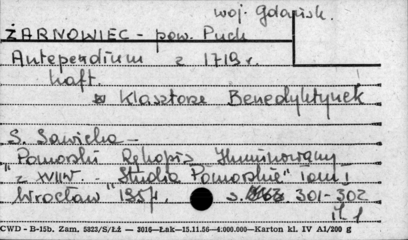 woj. Gdańsk.
ŻARNOWIEC - pow. Puck
Antependium z 1719 r.
haft
w Klasztorze Benedyktynek
S. Sawicka -
"Pomorski Rękopis Iluminowany
z XVII w. - "Studia Pomorskie" Tom I
Wrocław 1957. s. 301-302
il. 1
CWD - B-15b. Zam. 5823/S/Łż — 3016—Łak—15.11.56—4.000.000—Karton kl. IV A1/200 g